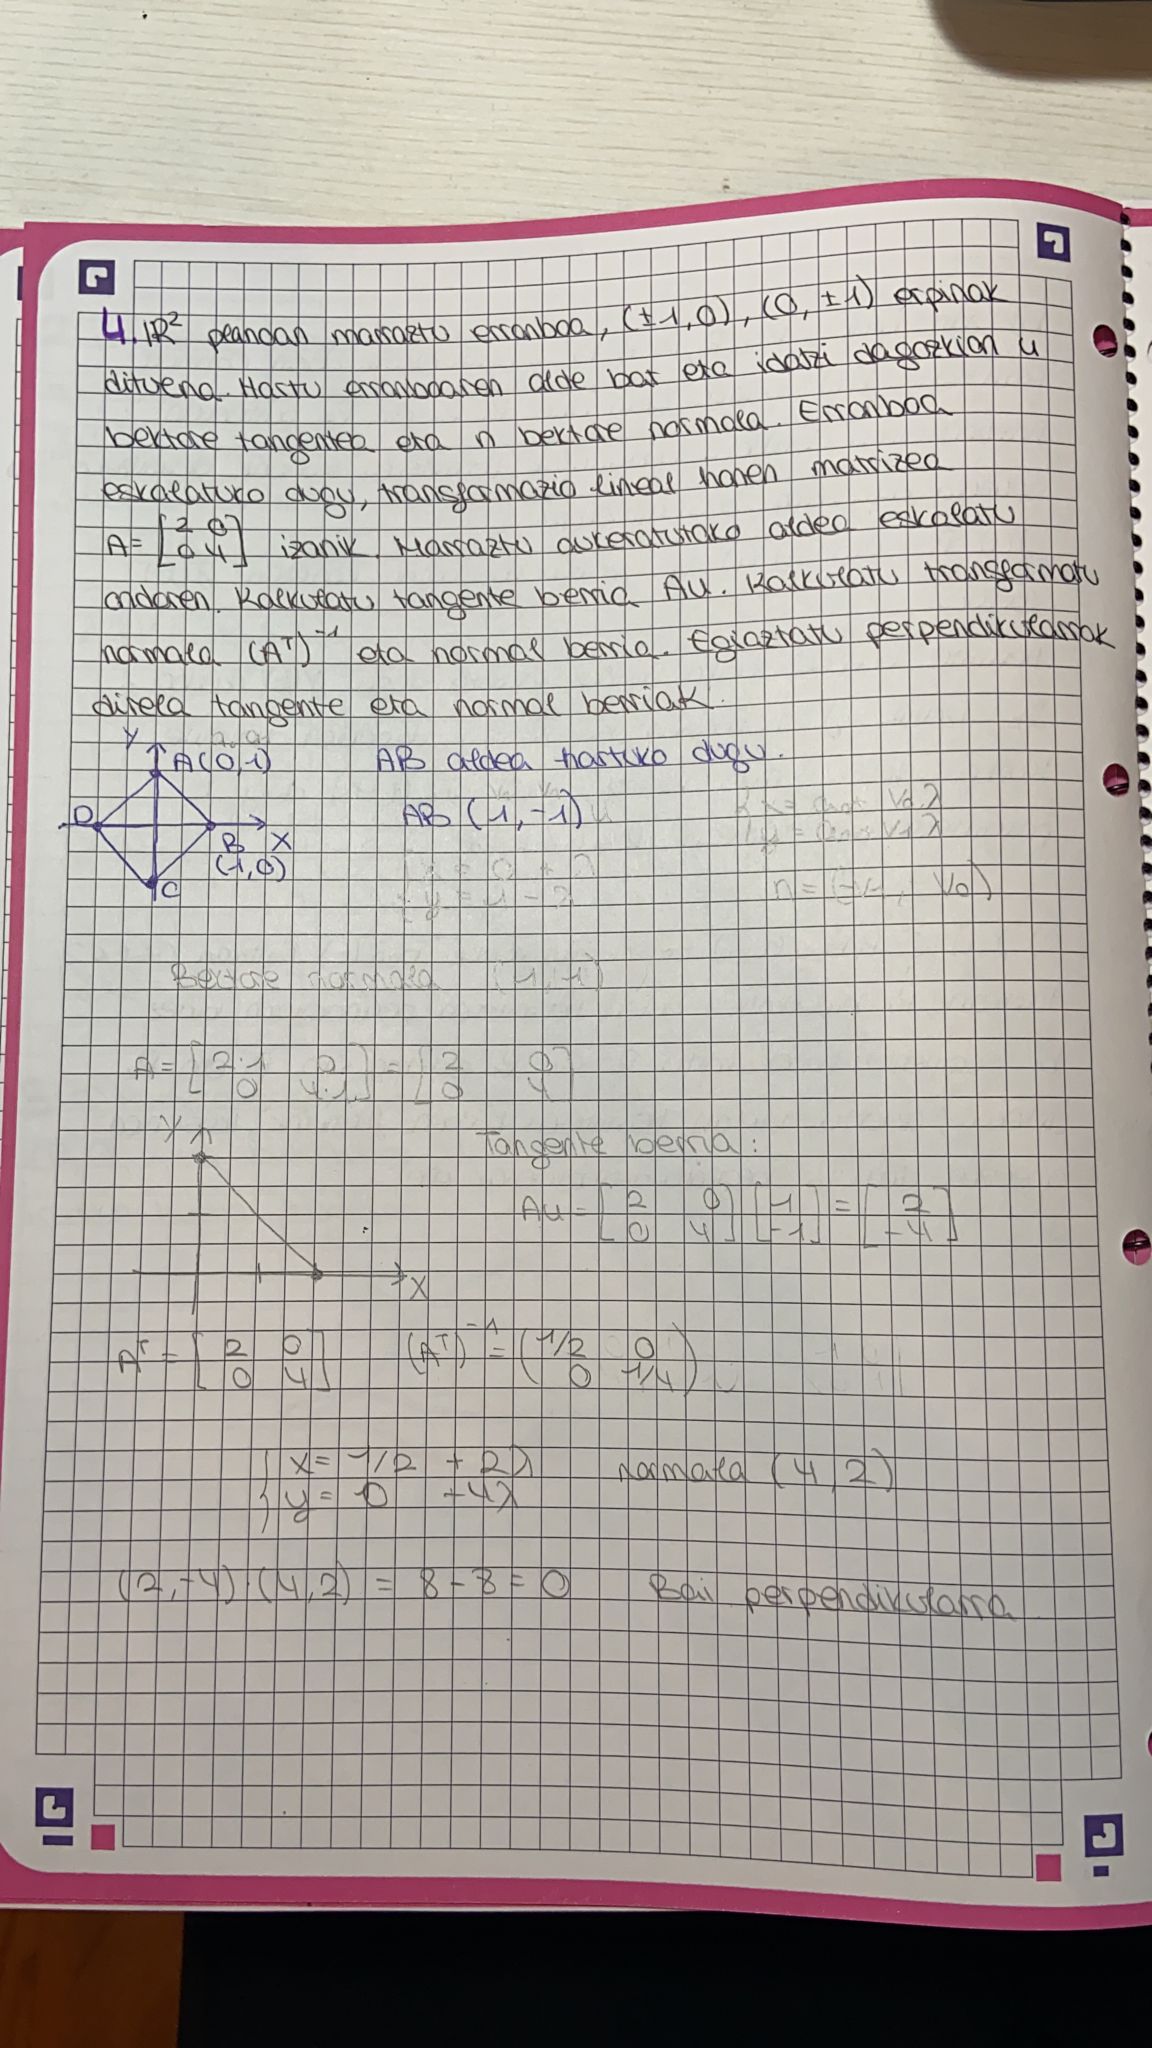 4. IR² peanoan marraztu erronboa, (±1,0), (0, ±1) erpinak
dituena. Hartu erronboaren alde bat eta idatzi dagozkion u
bektore tangentea eta n bektore normala. Erronboa
eskalatuko dugu, transformazio lineal honen matrizea
A = [2 0; 0 4] izanik. Marraztu aukeratutako aldea eskalatu
ondoren. Kalkulatu tangente berria Au. Kalkulatu transformatu
normala (Aᵀ)⁻¹ eta normal berria. Egiaztatu perpendikularrak
direla tangente eta normal berriak.
Y
A(0,1)
AB aldea hartuko dugu.
D
AB (1,-1)
B X
(1,0)
C
Bektore normala (1,1)
A = [2·1 0; 0 4·1] = [2 0; 0 4]
Y
Tangente berria:
Au = [2 0; 0 4] [1; -1] = [2; -4]
X
Aᵀ = [2 0; 0 4] (Aᵀ)⁻¹ = (1/2 0; 0 1/4)
{ x = 1/2 + 2λ normala (4,2)
y = 0 + 4λ
(2,-4)·(4,2) = 8 - 8 = 0 Bai perpendikularra